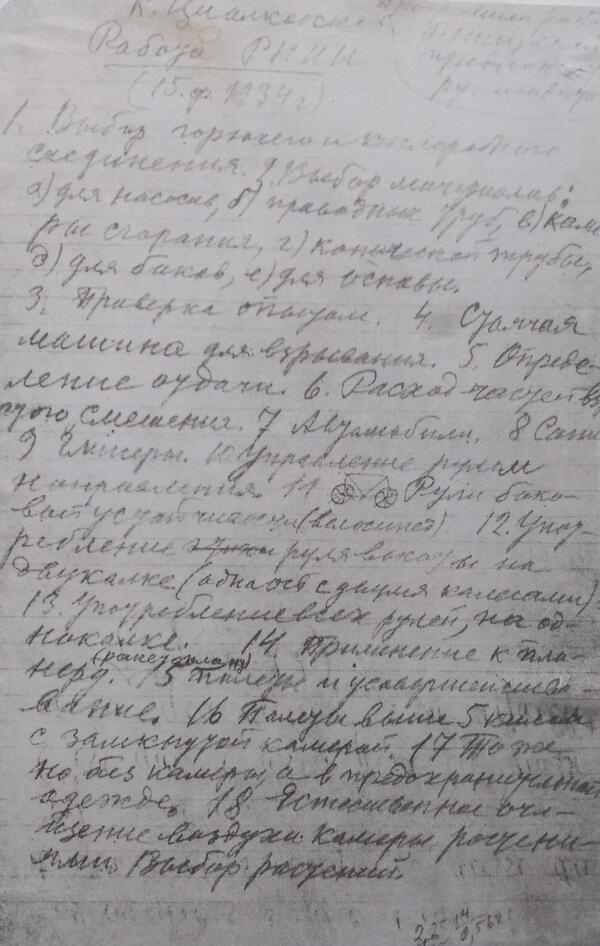 К. Циолковский
Работа РНИИ
(15.ф. 1934 г)
1. Выбор горючего и кислородного
соединения. 2. Выбор материалов:
а) для насосов, б) проводных труб, в) каме
ры сгорания, г) конической трубы,
д) для баков, е) для основы.
3. Проверка опытом. 4. Стоячая
машина для взрывания. 5. Опреде-
ление отдачи. 6. Расход
смешения. 7 Автомобили. 8 Сани
9 Глиссеры. 10 Управление рулем
направления. 11 Рули боко-
вой устойчивости (велосипед). 12. Упот-
ребление руля высоты на
двуколке (одна ось с двумя колесами)
13. Употребление всех рулей, на од-
ноколке. 14. Применение к пла-
(ракетоплану)
неру. 15 Полеты и усовершенство-
вание. 16 Полеты выше 5 килом
с замкнутой камерой 17 То же
но без камеры, а в предохранительной
одежде. 18 Естественное очи-
щение воздуха камеры растени-
ями. Выбор растений.